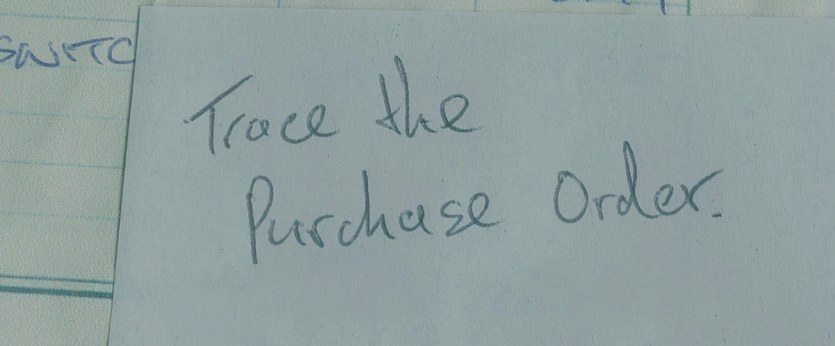 SWITC
Trace the
Purchase Order.